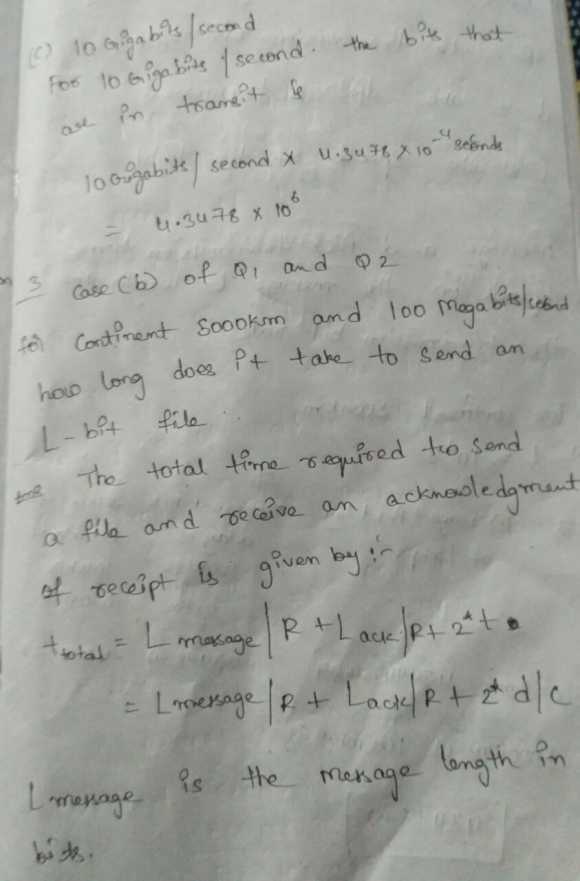 (c) 10 Gigabits/second
For 10 Gigabits/second. the bits that
are in transit is
10 Gigabits/second x 4.3478 x 10⁻⁴ seconds
= 4.3478 x 10⁶
3 Case (b) of Q1 and Q2
for Continent 5000km and 100 Megabits/second
how long does it take to send an
L-bit file.
The total time required to send
a file and receive an acknowledgment
of receipt is given by :-
t total = L message/R + L ack/R + 2*t
= L message/R + L ack/R + 2* d/c
L message is the message length in
bits.